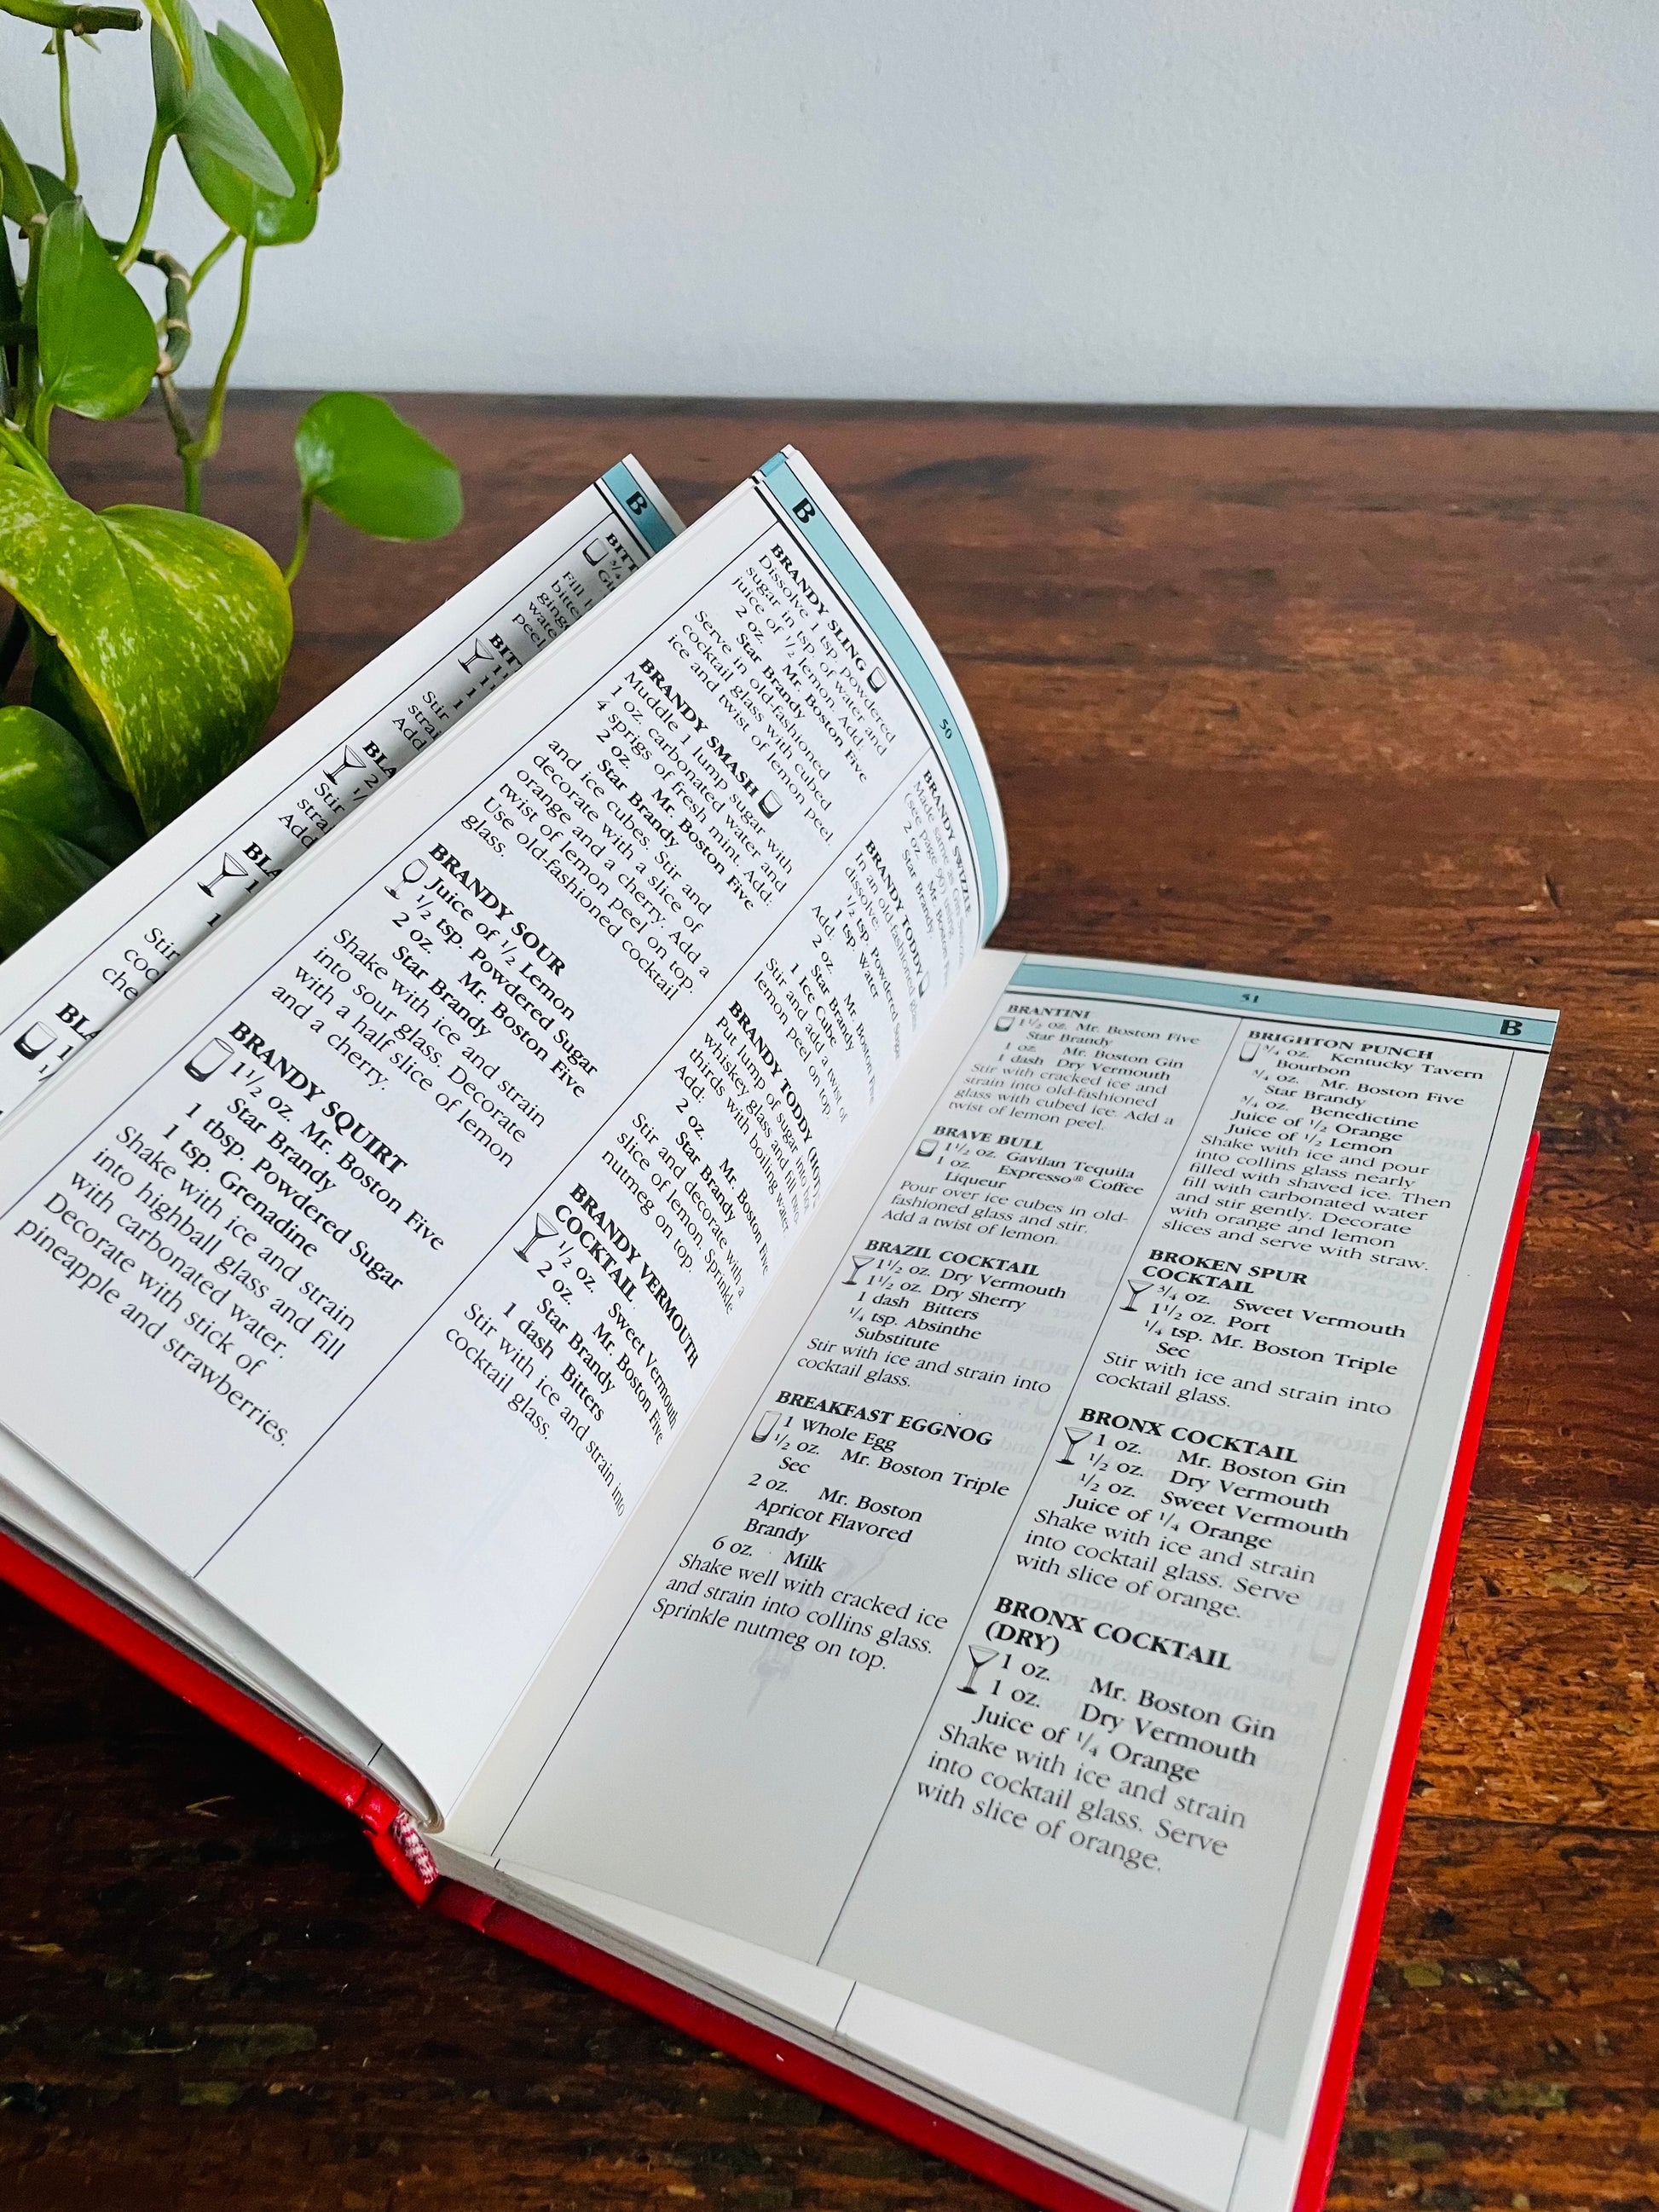 B
BITT
3/4
Fill
bitte
ging
wate
peel
BIT
1
1
Stir
strai
Add
BLA
2
Stir
stra
Add
BLA
1
1
Stir
coc
che
BLA
1
B
50
BRANDY SLING
Dissolve 1 tsp. powdered
sugar in tsp. of water and
juice of 1/2 lemon. Add:
2 oz. Mr. Boston Five
Star Brandy
Serve in old-fashioned
cocktail glass with cubed
ice and twist of lemon peel.
BRANDY SMASH
Muddle 1 lump sugar with
1 oz. carbonated water and
4 sprigs of fresh mint. Add:
2 oz. Mr. Boston Five
Star Brandy
and ice cubes. Stir and
decorate with a slice of
orange and a cherry. Add a
twist of lemon peel on top.
Use old-fashioned cocktail
glass.
BRANDY SOUR
Juice of 1/2 Lemon
1/2 tsp. Powdered Sugar
2 oz. Mr. Boston Five
Star Brandy
Shake with ice and strain
into sour glass. Decorate
with a half slice of lemon
and a cherry.
BRANDY SQUIRT
1 1/2 oz. Mr. Boston Five
Star Brandy
1 tbsp. Powdered Sugar
1 tsp. Grenadine
Shake with ice and strain
into highball glass and fill
with carbonated water.
Decorate with stick of
pineapple and strawberries.
BRANDY SWIZZLE
Made same as
(see page 90)
2 oz. Mr. Boston
Star Brandy
BRANDY TODDY
In an old-fashioned
dissolve:
1/2 tsp. Powdered Sugar
1 tsp. Water
Add:
2 oz. Mr. Boston Five
Star Brandy
1 Ice Cube
Stir and add a twist of
lemon peel on top.
BRANDY TODDY (Hot)
Put lump of sugar into
whiskey glass and fill two-
thirds with boiling water.
Add:
2 oz. Mr. Boston Five
Star Brandy
Stir and decorate with a
slice of lemon. Sprinkle
nutmeg on top.
BRANDY VERMOUTH
COCKTAIL
1/2 oz. Sweet Vermouth
2 oz. Mr. Boston Five
Star Brandy
1 dash Bitters
Stir with ice and strain into
cocktail glass.
51
B
BRANTINI
1 1/2 oz. Mr. Boston Five
Star Brandy
1 oz. Mr. Boston Gin
1 dash Dry Vermouth
Stir with cracked ice and
strain into old-fashioned
glass with cubed ice. Add a
twist of lemon peel.
BRAVE BULL
1 1/2 oz. Gavilan Tequila
1 oz. Expresso® Coffee
Liqueur
Pour over ice cubes in old-
fashioned glass and stir.
Add a twist of lemon.
BRAZIL COCKTAIL
1 1/2 oz. Dry Vermouth
1 1/2 oz. Dry Sherry
1 dash Bitters
1/4 tsp. Absinthe
Substitute
Stir with ice and strain into
cocktail glass.
BREAKFAST EGGNOG
1 Whole Egg
1/2 oz. Mr. Boston Triple
Sec
2 oz. Mr. Boston
Apricot Flavored
Brandy
6 oz. Milk
Shake well with cracked ice
and strain into collins glass.
Sprinkle nutmeg on top.
BRIGHTON PUNCH
3/4 oz. Kentucky Tavern
Bourbon
3/4 oz. Mr. Boston Five
Star Brandy
3/4 oz. Benedictine
Juice of 1/2 Orange
Juice of 1/2 Lemon
Shake with ice and pour
into collins glass nearly
filled with shaved ice. Then
fill with carbonated water
and stir gently. Decorate
with orange and lemon
slices and serve with straw.
BROKEN SPUR
COCKTAIL
3/4 oz. Sweet Vermouth
1 1/2 oz. Port
1/4 tsp. Mr. Boston Triple
Sec
Stir with ice and strain into
cocktail glass.
BRONX COCKTAIL
1 oz. Mr. Boston Gin
1/2 oz. Dry Vermouth
1/2 oz. Sweet Vermouth
Juice of 1/4 Orange
Shake with ice and strain
into cocktail glass. Serve
with slice of orange.
BRONX COCKTAIL
(DRY)
1 oz. Mr. Boston Gin
1 oz. Dry Vermouth
Juice of 1/4 Orange
Shake with ice and strain
into cocktail glass. Serve
with slice of orange.